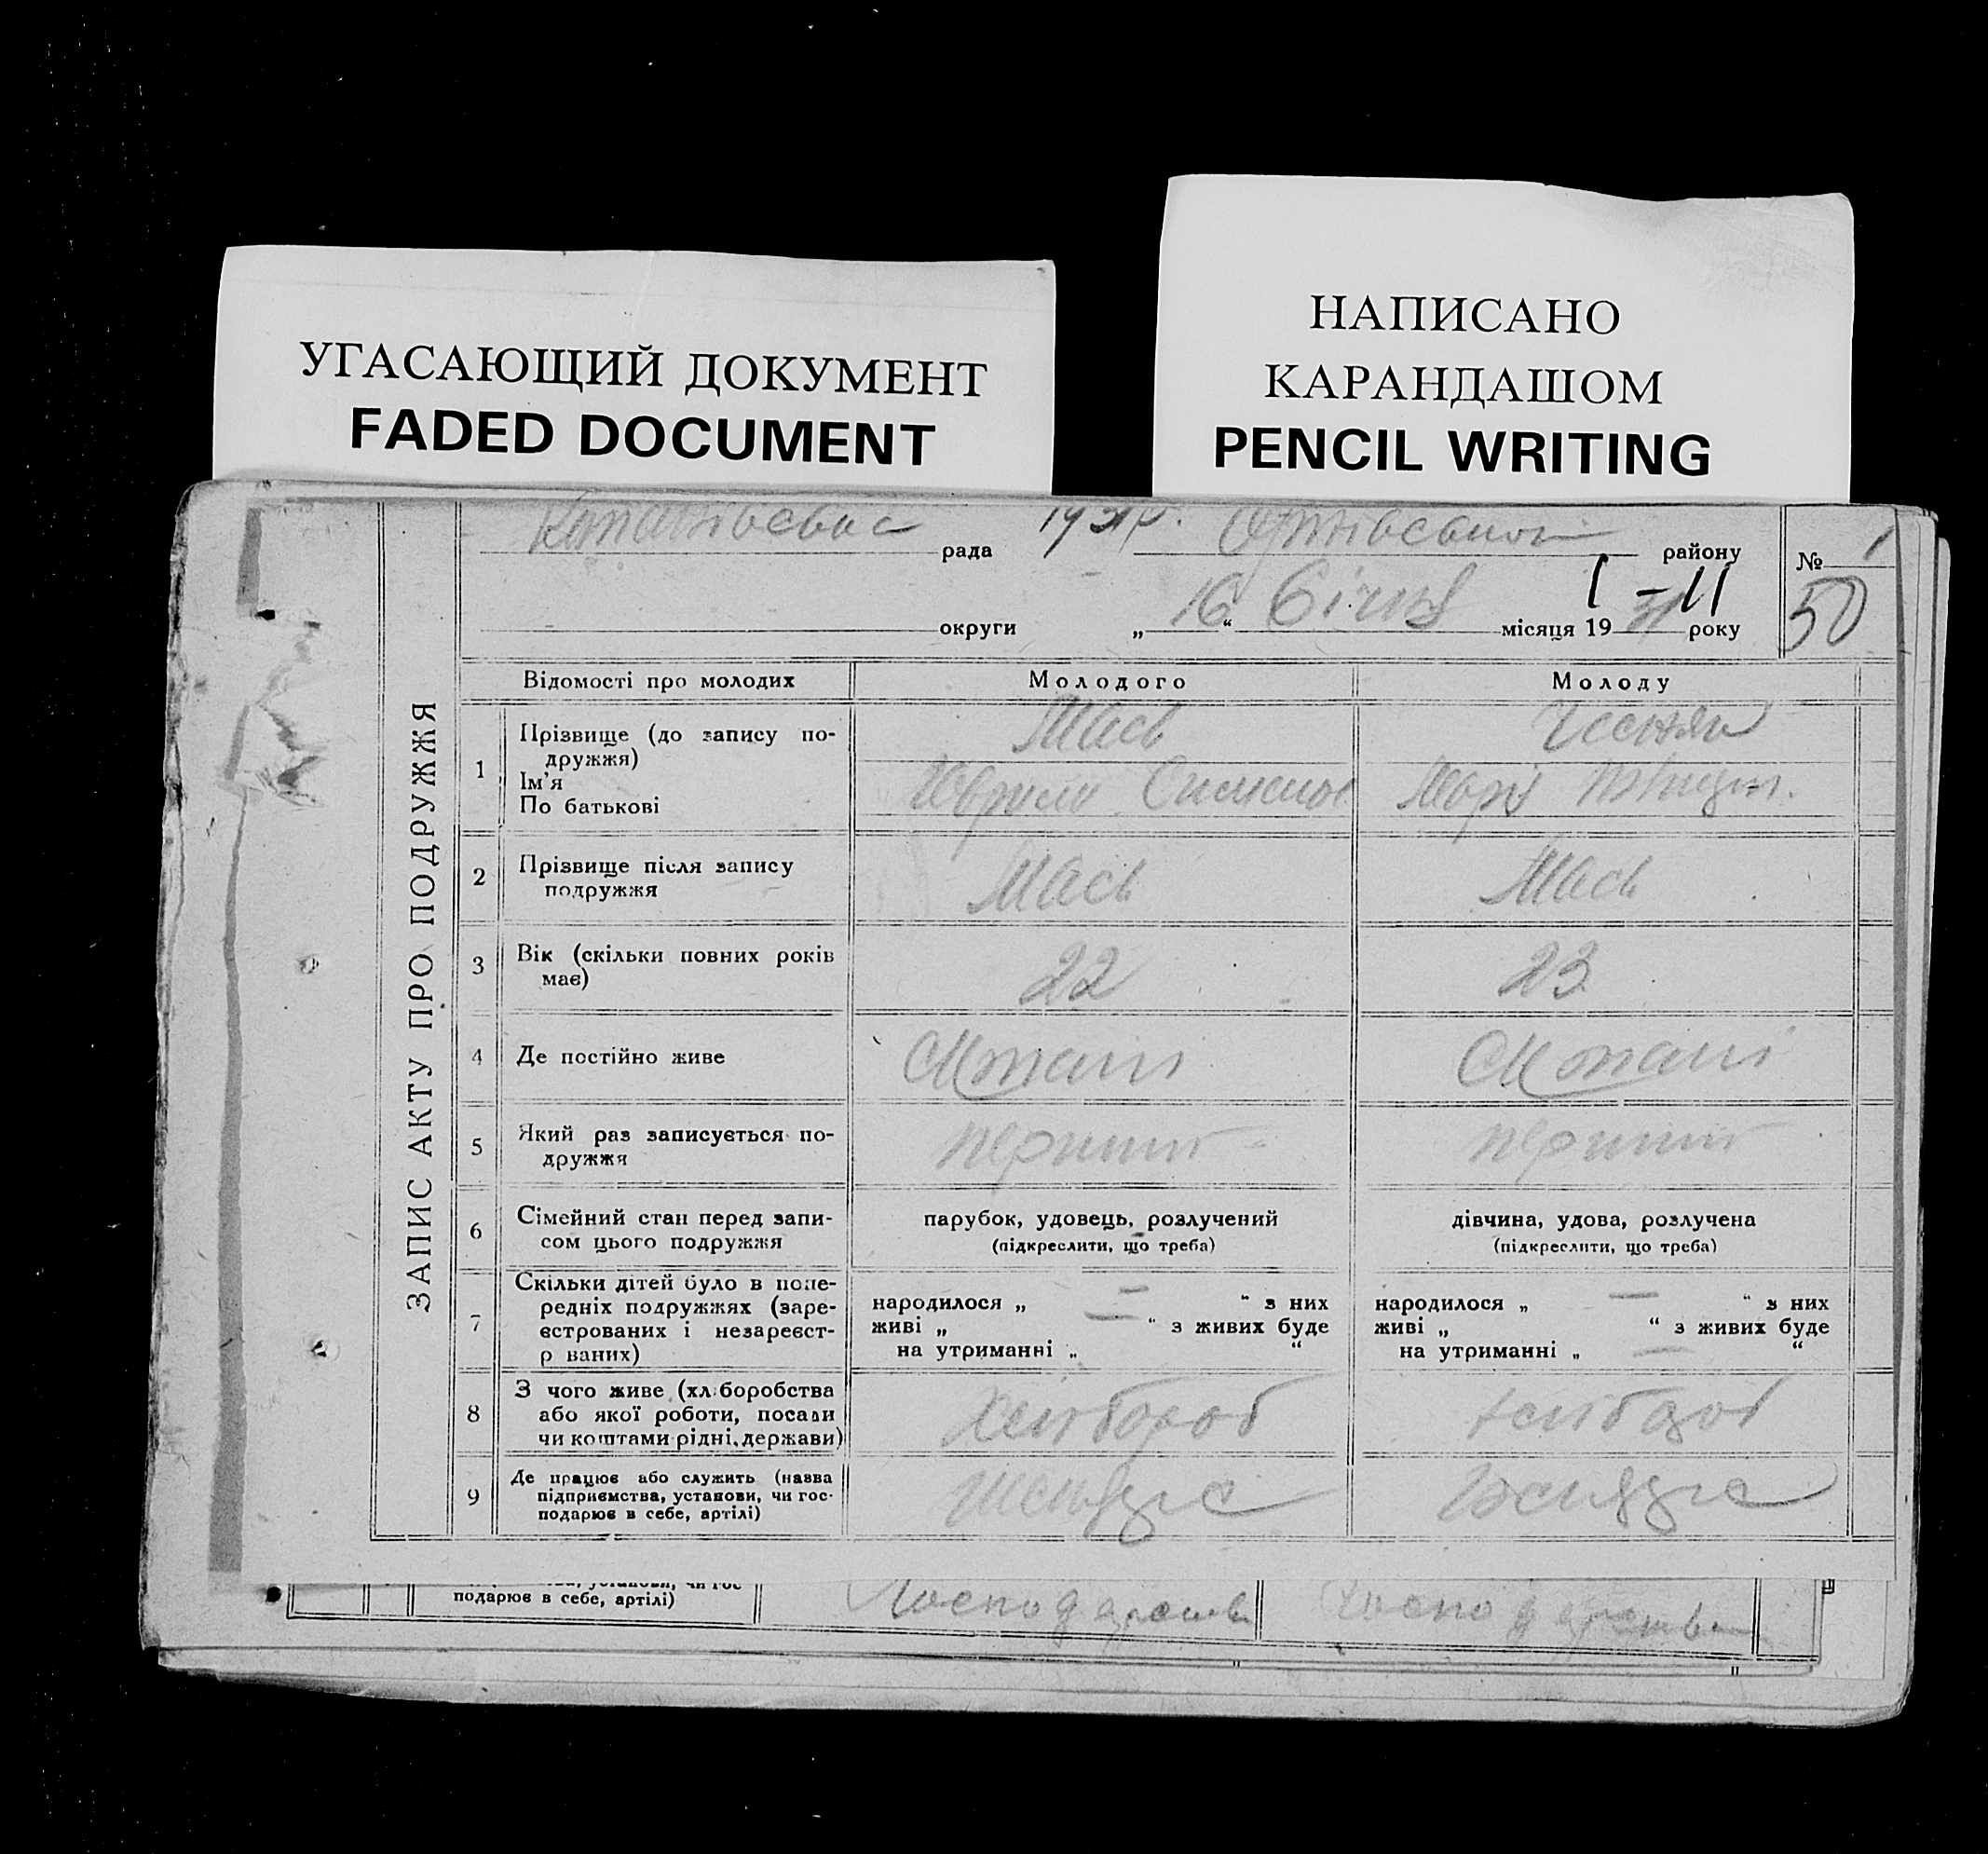 НАПИСАНО
КАРАНДАШОМ
PENCIL WRITING
УГАСАЮЩИЙ ДОКУМЕНТ
FADED DOCUMENT
ЗАПИС АКТУ ПРО ПОДРУЖЖЯ
рада 1931 р. району № 1
округи „ 16 “ Січня місяця 19 31 року
I - 11
50
Відомості про молодих Молодого Молоду
1 Прізвище (до запису по-
дружжя)
Ім'я
По батькові
Мась
2 Прізвище після запису
подружжя
Мась Мась
3 Вік (скільки повних років
має)
22 23
4 Де постійно живе
5 Який раз записується по-
дружжя
перший перший
6 Сімейний стан перед запи-
сом цього подружжя
парубок, удовець, розлучений дівчина, удова, розлучена
(підкреслити, що треба) (підкреслити, що треба)
7 Скільки дітей було в попе-
редніх подружжях (заре-
єстрованих і незареєст-
р ваних)
народилося „ — “ з них народилося „ — “ з них
живі „ — “ з живих буде живі „ “ з живих буде
на утриманні „ “ на утриманні „ — “
8 З чого живе (хл боробства
або якої роботи, посади
чи коштами рідні, держави)
Хлібороб хлібороб
9 Де працює або служить (назва
підприємства, установи, чи гос-
подарює в себе, артілі)
подарює в себе, артілі)